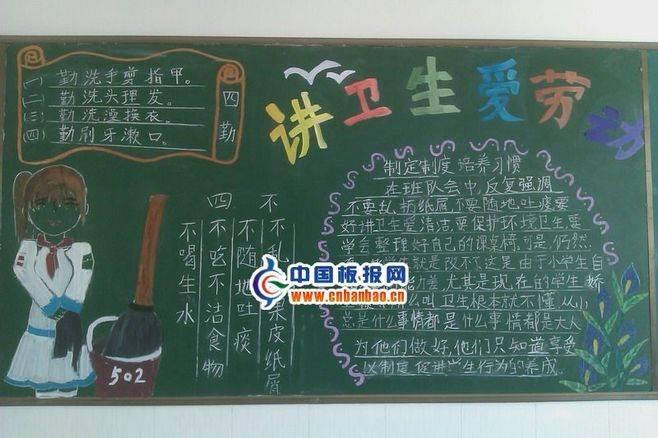 讲卫生爱劳动
四勤
(一) 勤洗手剪指甲。
(二) 勤洗头理发。
(三) 勤洗澡换衣。
(四) 勤刷牙漱口。
四不
不乱 果皮纸屑
不随地吐痰
不吃不洁食物
不喝生水
制定制度 培养习惯
在班队会中,反复强调
不要乱扔纸屑,不要随地吐痰要
好讲卫生爱清洁要保护环境卫生要
学会整理好自己的课桌椅可是,仍然
就是改不了这是由于小学生自
尤其是现在的学生娇
么叫卫生根本就不懂从小
总是什么事情都是什么事情都是大人
为他们做好,他们只知道享受
以制度促进卫生行为的养成
502
中国板报网
www.cnbanbao.cn